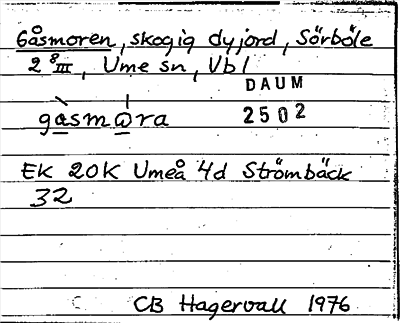 Gåsmoren, skogig dyjord, Sörböle
2 8 III, Ume sn, Vbl
DAUM
gàsmωra 2502
EK 20K Umeå 4d Strömbäck
32
CB Hagervall 1976